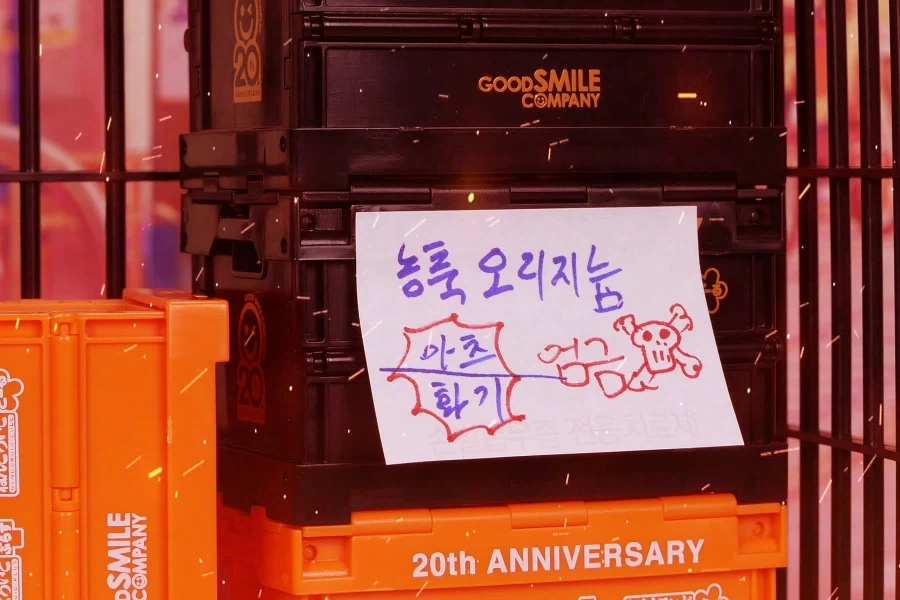 20
GOODSMILE
COMPANY
농툭 오리지늄
아츠
화기
엄금
20
20th ANNIVERSARY
GOODSMILE
COMPANY